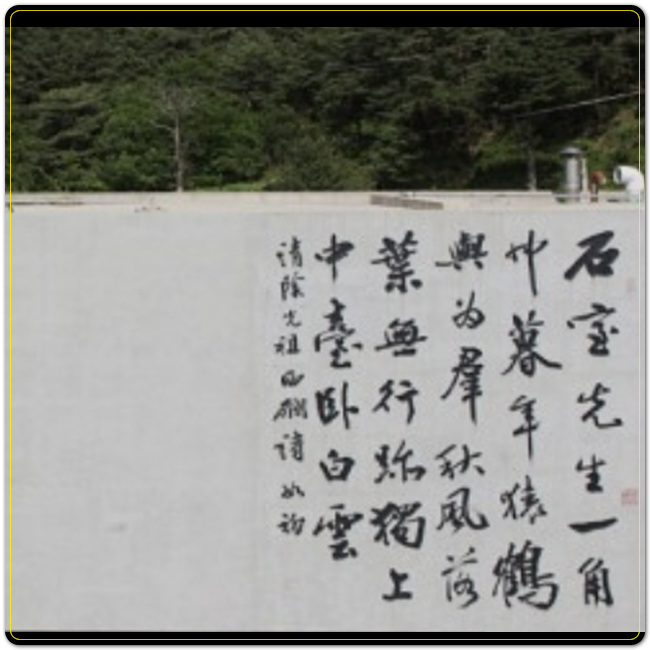 石室先生一角
巾暮年猿鶴
與為羣秋風落
葉無行跡獨上
中臺卧白雲
清陰先祖
詩